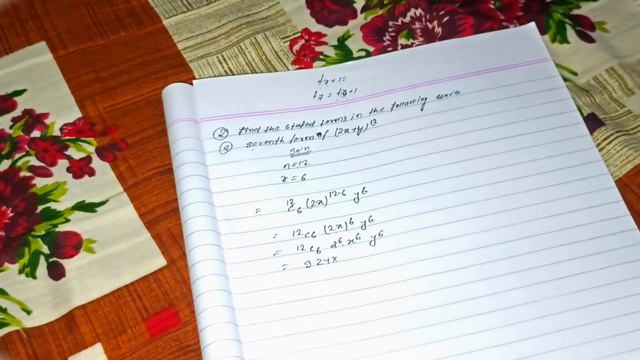 t7+1=
t7 = t6+1
② Find the stated terms in the following series
ⓐ seventh term of (2x+y)¹²
soln
n=12
r=6
= ¹²C₆ (2x)¹²⁻⁶ y⁶
= ¹²C₆ (2x)⁶ y⁶
= ¹²C₆ 2⁶. x⁶ y⁶
= 924x